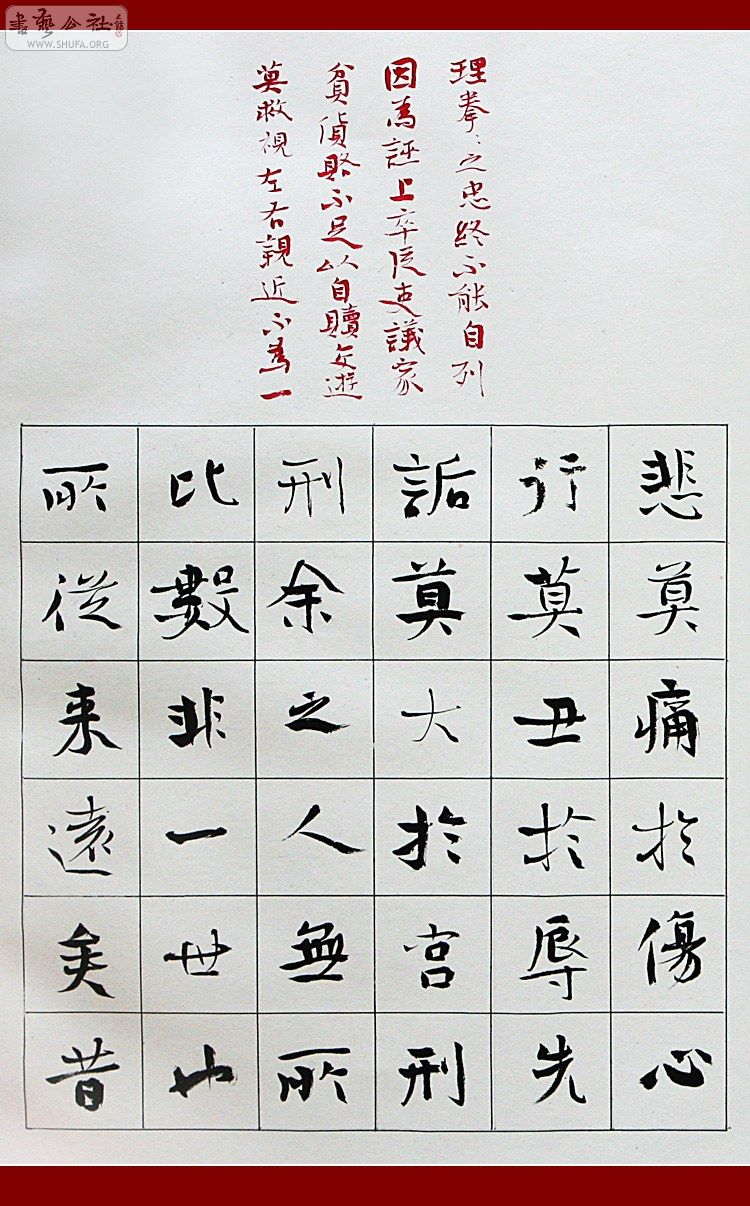 書藝公社
WWW.SHUFA.ORG
理拳〻之忠終不能自列
因為誣上卒從吏議家
貧貨賂不足以自贖交遊
莫救視左右親近不為一
悲莫痛於傷心
行莫丑於辱先
詬莫大於宫刑
刑余之人無所
比數非一世也
所從来遠矣昔